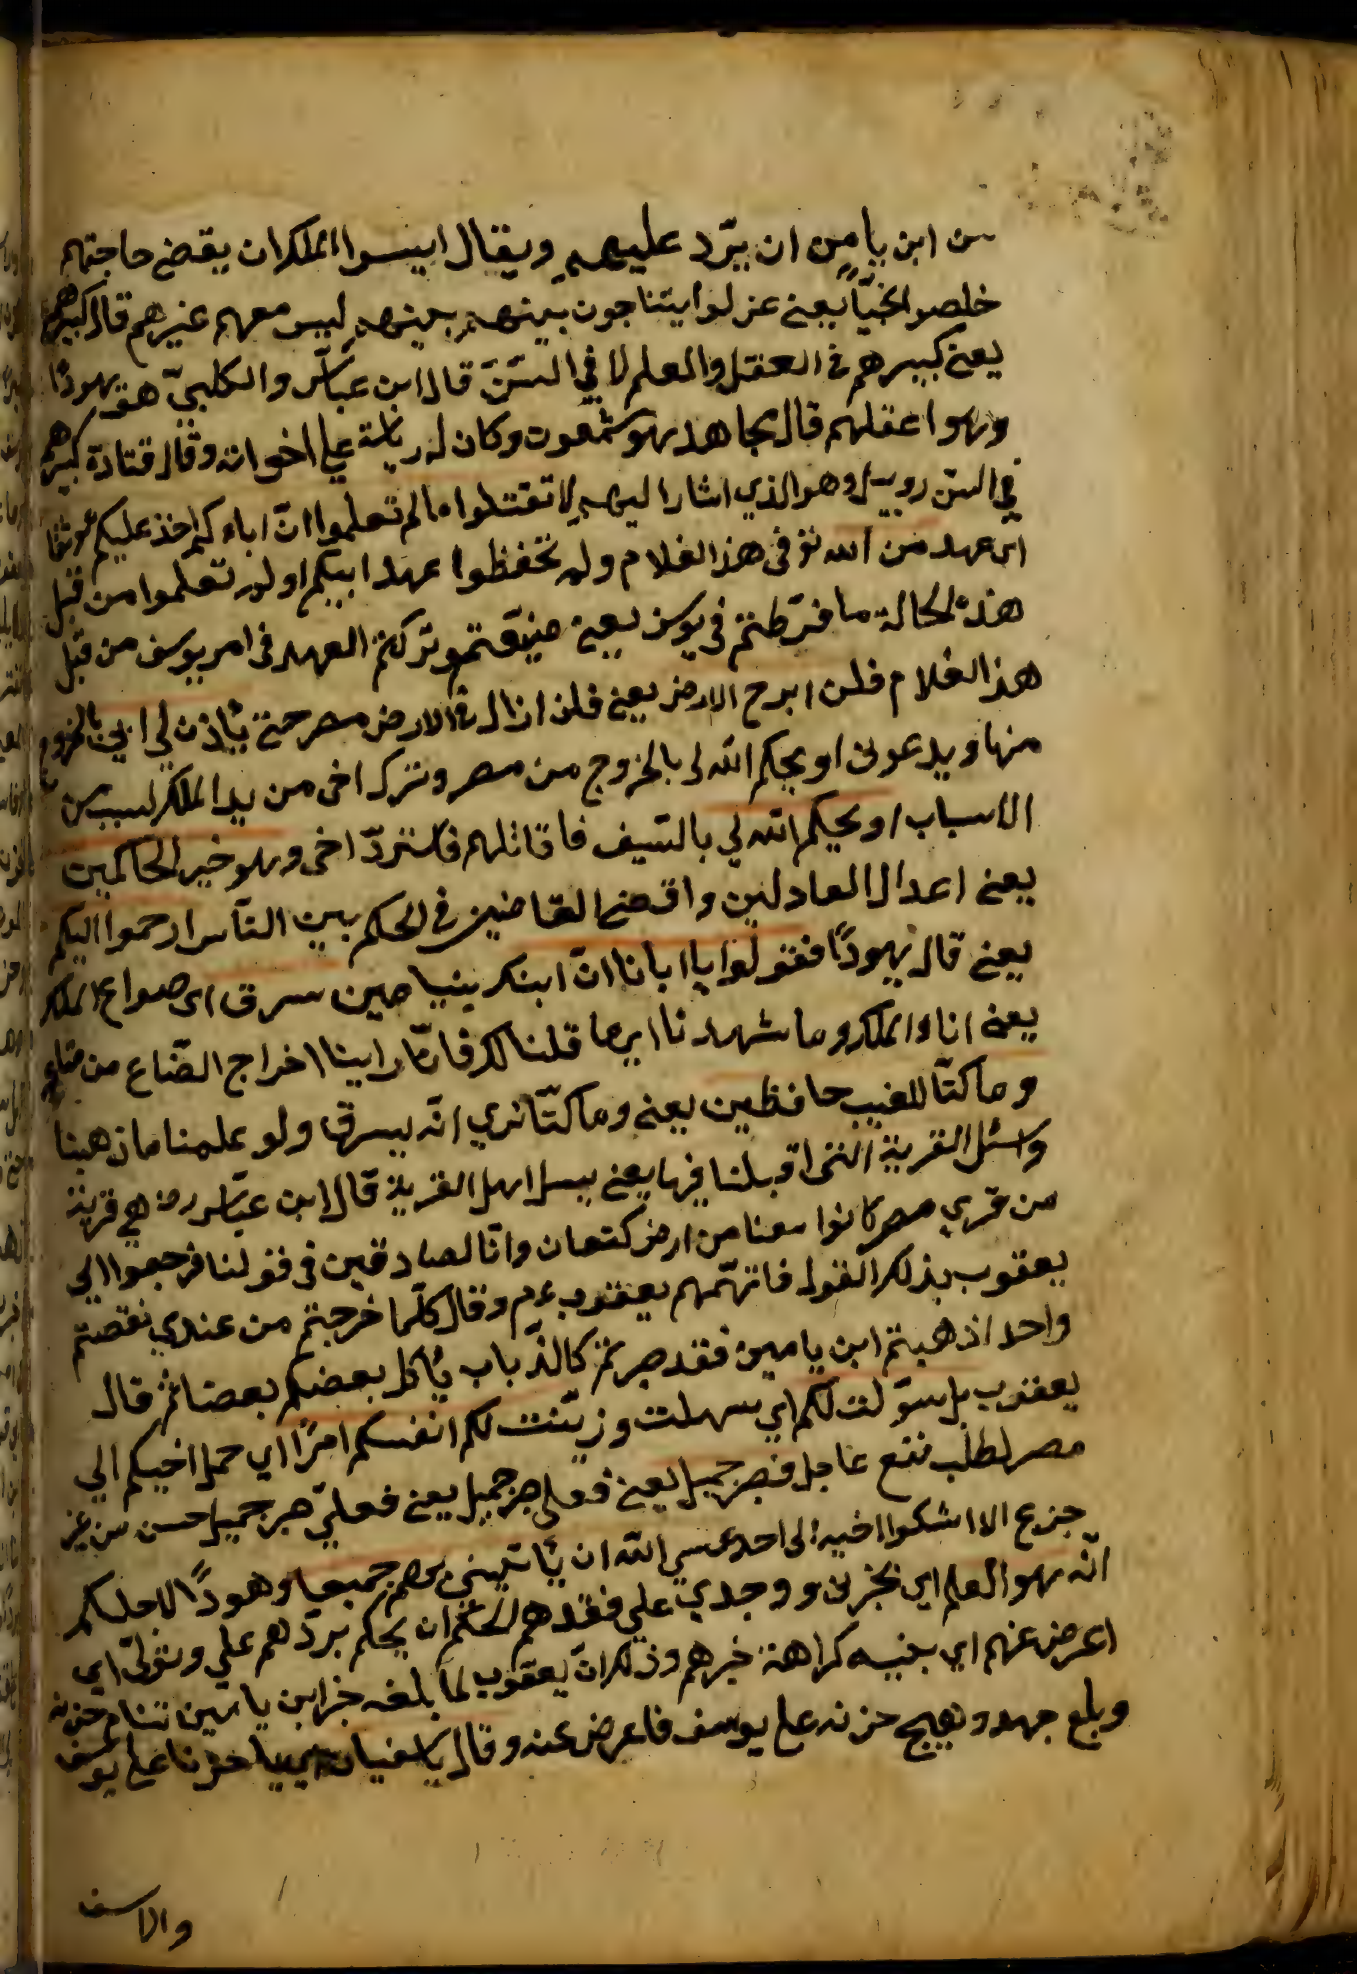 من ابن يامين ان يردّ عليهم ويقال ايسوا الملك ان يقضي حاجتهم
خلصوا نجيّا يعني عزلوا يتناجون بينهم ليس معهم غيرهم قال كبيرهم
يعني كبيرهم في العقل والعلم لا في السّنّ قال ابن عبّاس والكلبيّ هو يهودًا
وهو اعقلهم قال مجاهد هو شمعون وكان له رياسة علي اخوانه وقال قتادة كبيرهم
في السنّ روبيل وهو الذي اشار اليهم لا تقتلوا ما لم تعلموا انّ اباءكم اخذ عليكم موثقا
اي عهد من الله في هذ الغلام ولم تحفظوا عهد ابيكم او لم تعلموا من قبل
هذه الحالة ما فرّطتم في يوسف يعني ضيّعتم وتركتم العهد في امر يوسف من قبل
هذ الغلام فلن ابرح الارض يعني فلن ازال في الارض مصر حتي يأذن لي ابي بالخروج
منها ويدعوني او يحكم الله لي بالخروج من مصر ونترك اخي من يد الملك لسبب من
الاسباب او يحكم الله لي بالسّيف فاقاتلهم فاستردّ اخي وهو خير الحاكمين
يعني اعدل العادلين واقضي القاضين في الحكم بين النّاس ارجعوا اليكم
يعني قال يهودًا فقولوا يا ابانا انّ ابنك بنيامين سرق اي صواع الملك
يعني اناء الملك وما شهدنا اي ما قلنا لك فانّا راينا اخراج الصّاع من متاعه
وما كنّا للغيب حافظين يعني وما كنّا ندري انّه يسرق ولو علمنا ما ذهبنا
واسئل القرية التي اقبلنا فيها يعني يسل اهل القرية قال ابن عبّاس رض هي قرية
من قري مصر كانوا معنا من ارض كنعان وانّا لصادقين في قولنا فرجعوا الي
يعقوب بذلك القول فاتهمهم يعقوب عم وقال كلّما خرجتم من عندي نقصتم
واحد اذ هبتم ابن يامين فقد صرتم كالذباب يأكل بعضكم بعضا ثم قال
يعقوب بل سوّلت لكم اي سهلت وزيّنت لكم انفسكم امرًا اي حمل اخيكم الي
مصر لطلب نفع عاجل فصبر جميل يعني فعلي صبر جميل يعني فعليّ صبر جميل احسن من غير
جزع الا اشكوا فيه الي احد عسي الله ان يأتيني بهم جميعا وهودًا لاجلكم
انّه هو العليم اي بحزني ووجدي علي فقدهم الحكيم ان يحكم بردّهم علي وتولّي اي
اعرض عنهم اي بنيه كراهة خبرهم وذلك انّ يعقوب لما بلغه خبر ابن يامين تنام حزنه
وبلع جهده وهيج حزنه علي يوسف فاعرض عنه وقال يا اسفي يا حزنا علي يوسف
والاسف